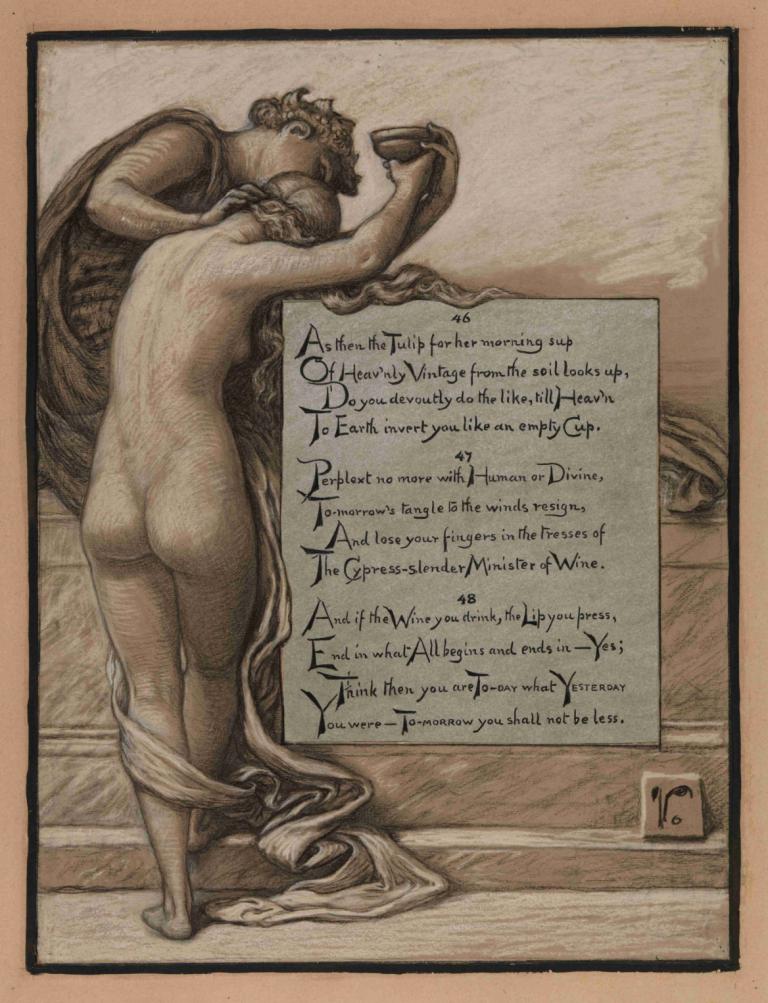 46
As then the Tulip for her morning sup
Of Heav'nly Vintage from the soil looks up,
Do you devoutly do the like, till Heav'n
To Earth invert you like an empty Cup.
47
Perplext no more with Human or Divine,
To-morrow's tangle to the winds resign,
And lose your fingers in the tresses of
The Cypress-slender Minister of Wine.
48
And if the Wine you drink, the Lip you press,
End in what All begins and ends in—Yes;
Think then you are To-DAY what YESTERDAY
You were—To-MORROW you shall not be less.